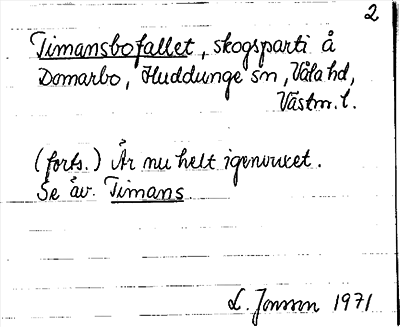 2
Timansbofallet, skogsparti å
Domarbo, Huddunge sn, Våla hd,
Västm. l.
(forts.) Är nu helt igenvuxet.
Se äv. Timans
L. Jonson 1971